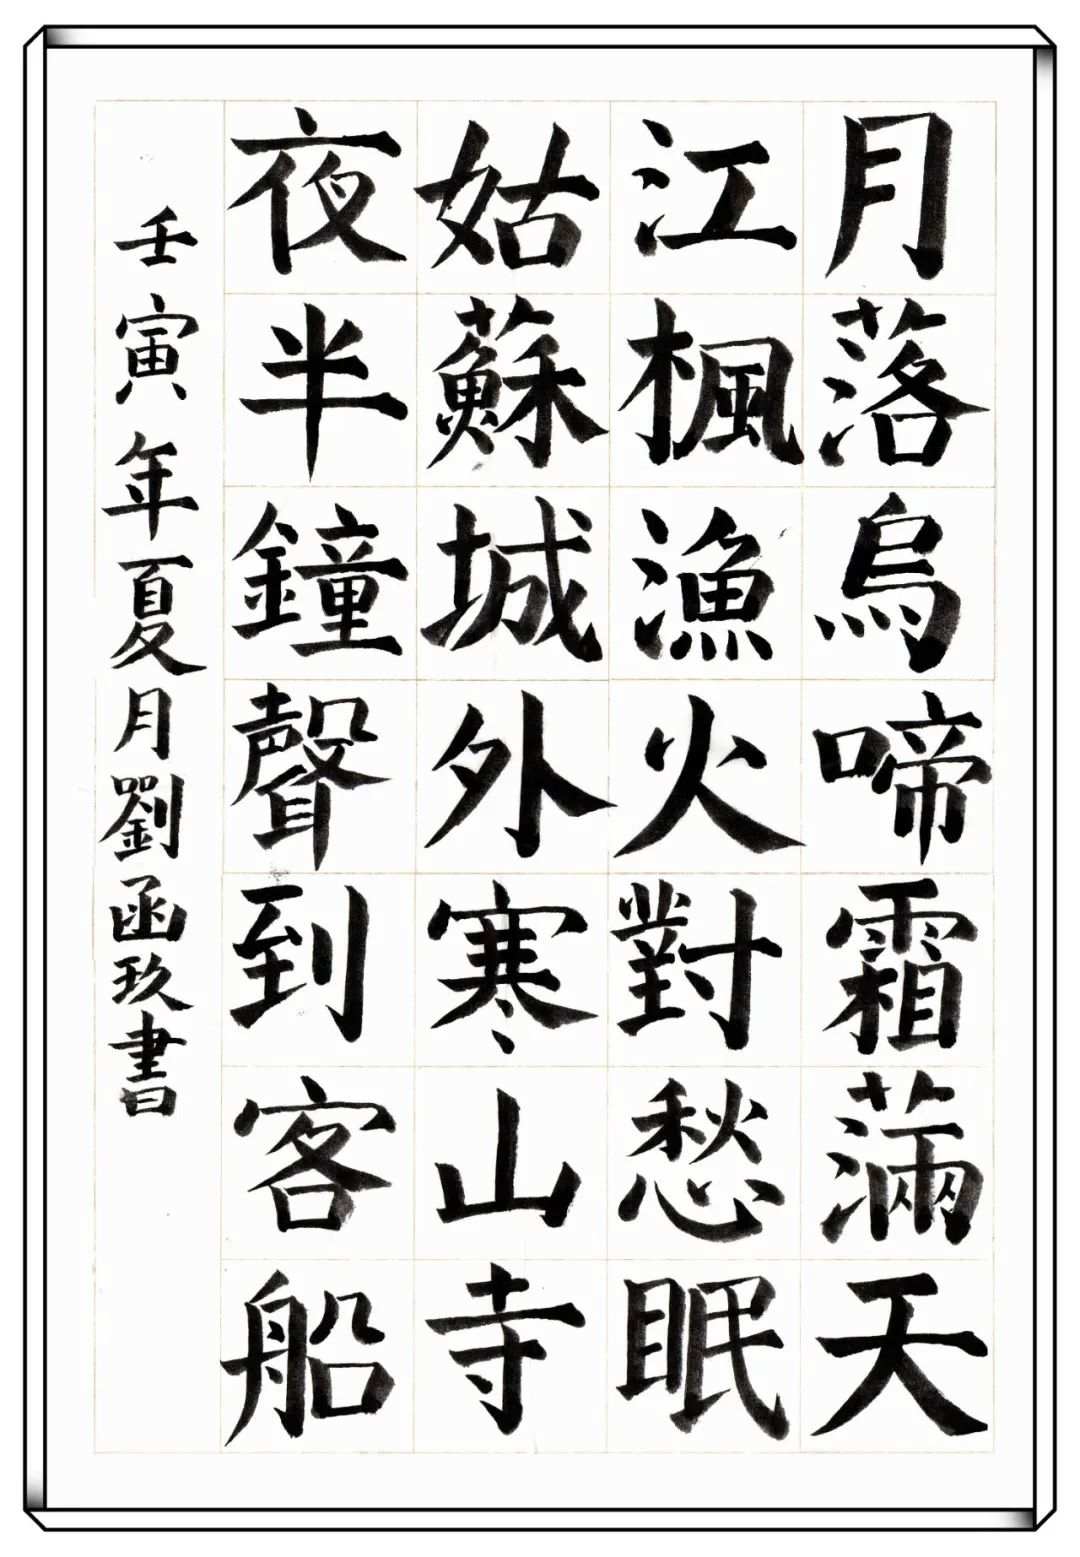 月落烏啼霜滿天
江楓漁火對愁眠
姑蘇城外寒山寺
夜半鐘聲到客船
壬寅年夏月劉函玖書